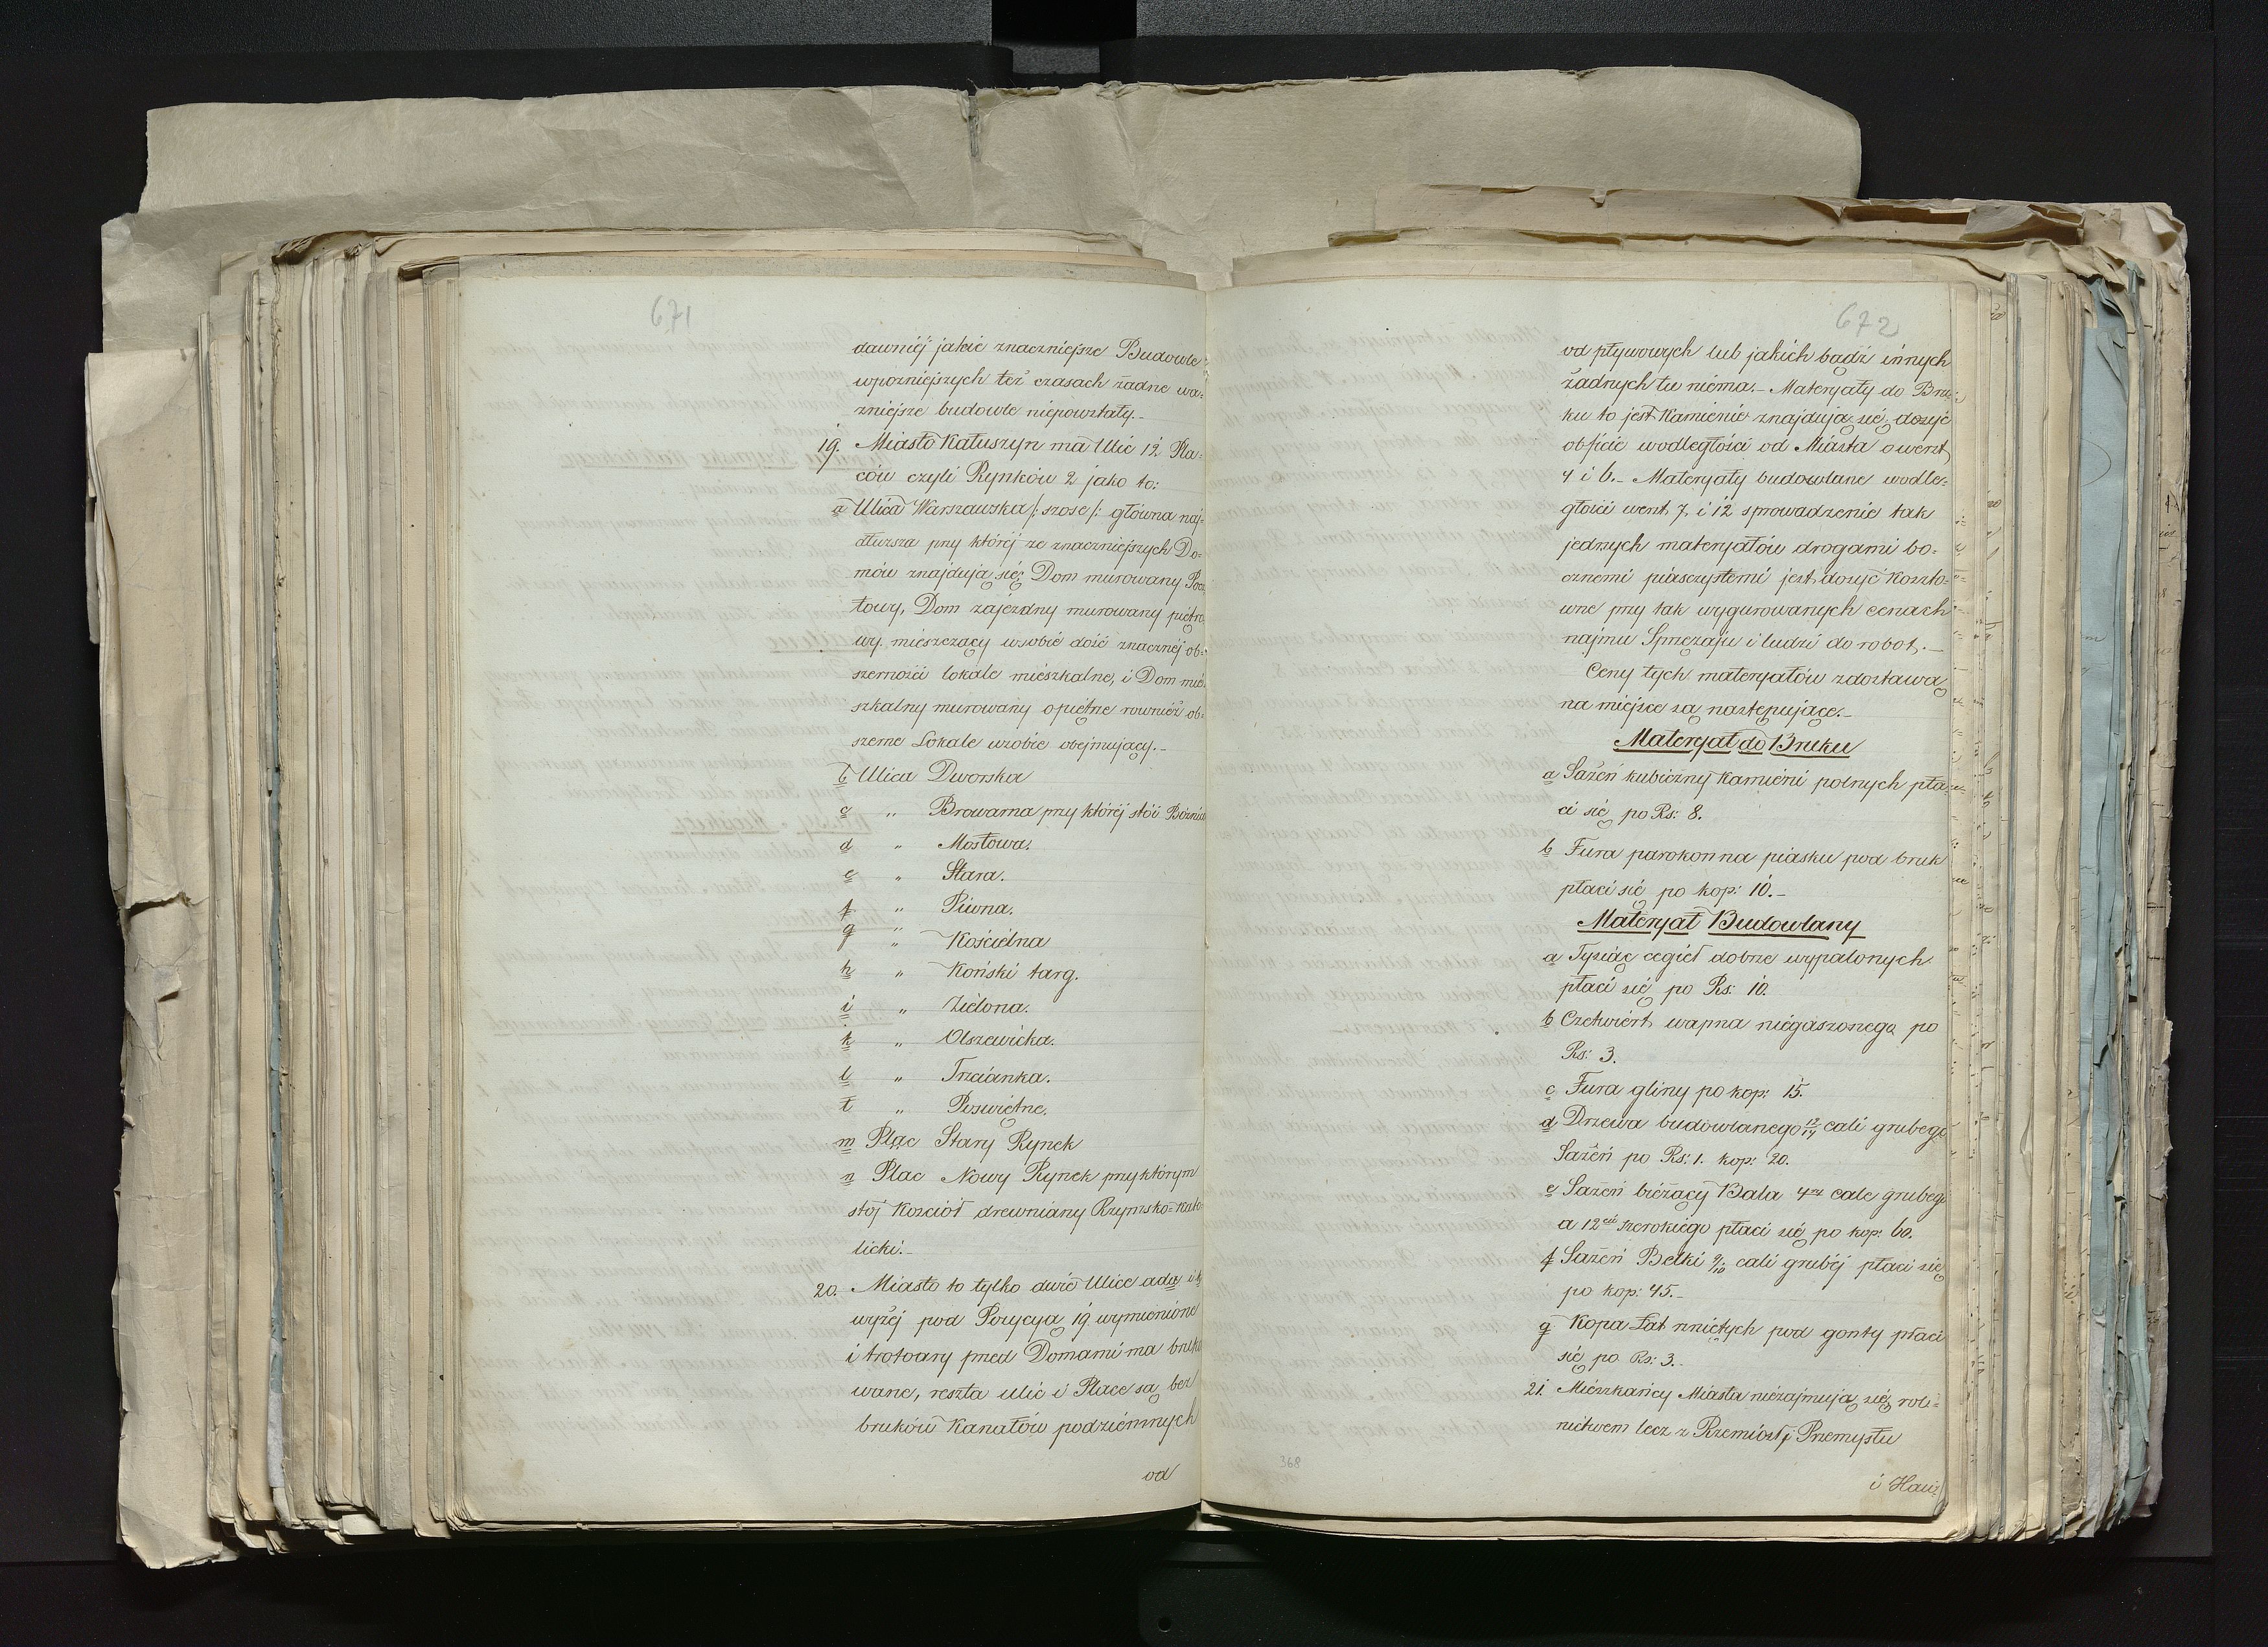 671
dawniéj jakie znaczniejsze Budowle
wpozniejszych też czasach żadne wa=
zniejsze budowle niepowstały.–
19. Miasto Kałuszyn ma Ulic 12 Pla=
ców czyli Rynków 2 jako to:
a Ulica Warszawska /: szose /: główna naj=
dłuższa przy któréj ze znaczniejszych Do=
mów znajdują się: Dom murowany Pocz
towy, Dom zajezdny murowany piętro
wy. mieszczący wsobie dość znacznéj ob=
szerności lokale mieszkalne, i Dom mie
szkalny murowany opiętrze rownież ob=
szerne Lokale wsobie obejmujący.–
b Ulica Dworska
c „ Browarna przy któréj stoi Bóżnica
d „ Mostowa.
e „ Stara.
f „ Piwna.
g „ Kościelna
h „ Koński targ.
i „ Zielona.
k „ Olszewicka.
l „ Trzcianka.
ł „ Poswiętne.
m Plac Stary Rynek
n Plac Nowy Rynek przyktórym
stoj Kosciół drewniany Rzymsko=Kato
licki.–
20. Miasto to tylko dwie Ulice ada i b
wyżéj pod Pozycyą 19 wymienione
i trotoary przed Domami ma bruko
wane, reszta ulic i Place są bez
bruków Kanałów podziemnych
od
672
od pływowych lub jakich bądź innych
żadnych tu niéma.– Materyały do Bru=
ku to jest Kamienie znajdują się dosyć
obficie wodległości od Miasta owerst
4 i 6.– Materyały budowlane wodle=
głości werst 7, i 12 sprowadzenie tak
jednych materyałów drogami bo=
cznemi piasczystemi jest dosyć koszto=
wne przy tak wygurowanych cenach
najmu Sprzęzaju i ludzi do robot.–
Ceny tych materyałów zdostawą
na miejsce są następujące.–
Materyał do Bruku
a Sażeń kubiczny Kamieni polnych pła=
ci się po Rs: 8.
b Fura parokonna piasku pod bruk
płaci się po kop: 10.–
Materyał Budowlany
a Tysiąc cegieł dobrze wypalonych
płaci się po Rs: 10.
b Czetwiert wapna niegaszonego po
Rs: 3.
c Fura gliny po kop: 15.
d Drzewa budowlanego 12/14 cali grubego
Sażeń po Rs: 1. kop: 20.
e Sażeń bieżący Bala 4ry cale grubego
a 12cie szerokiego płaci się po kop: 60.
f Sażeń Belki 9/10 cali grubéj płaci się
po kop: 45.–
g Kopa Łat rzniętych pod gonty płaci
się po Rs: 3.–
21. Mieszkańcy Miasta niezajmują się rol=
nictwem lecz z Rzemiosł i Przemysłu
i Han=
368